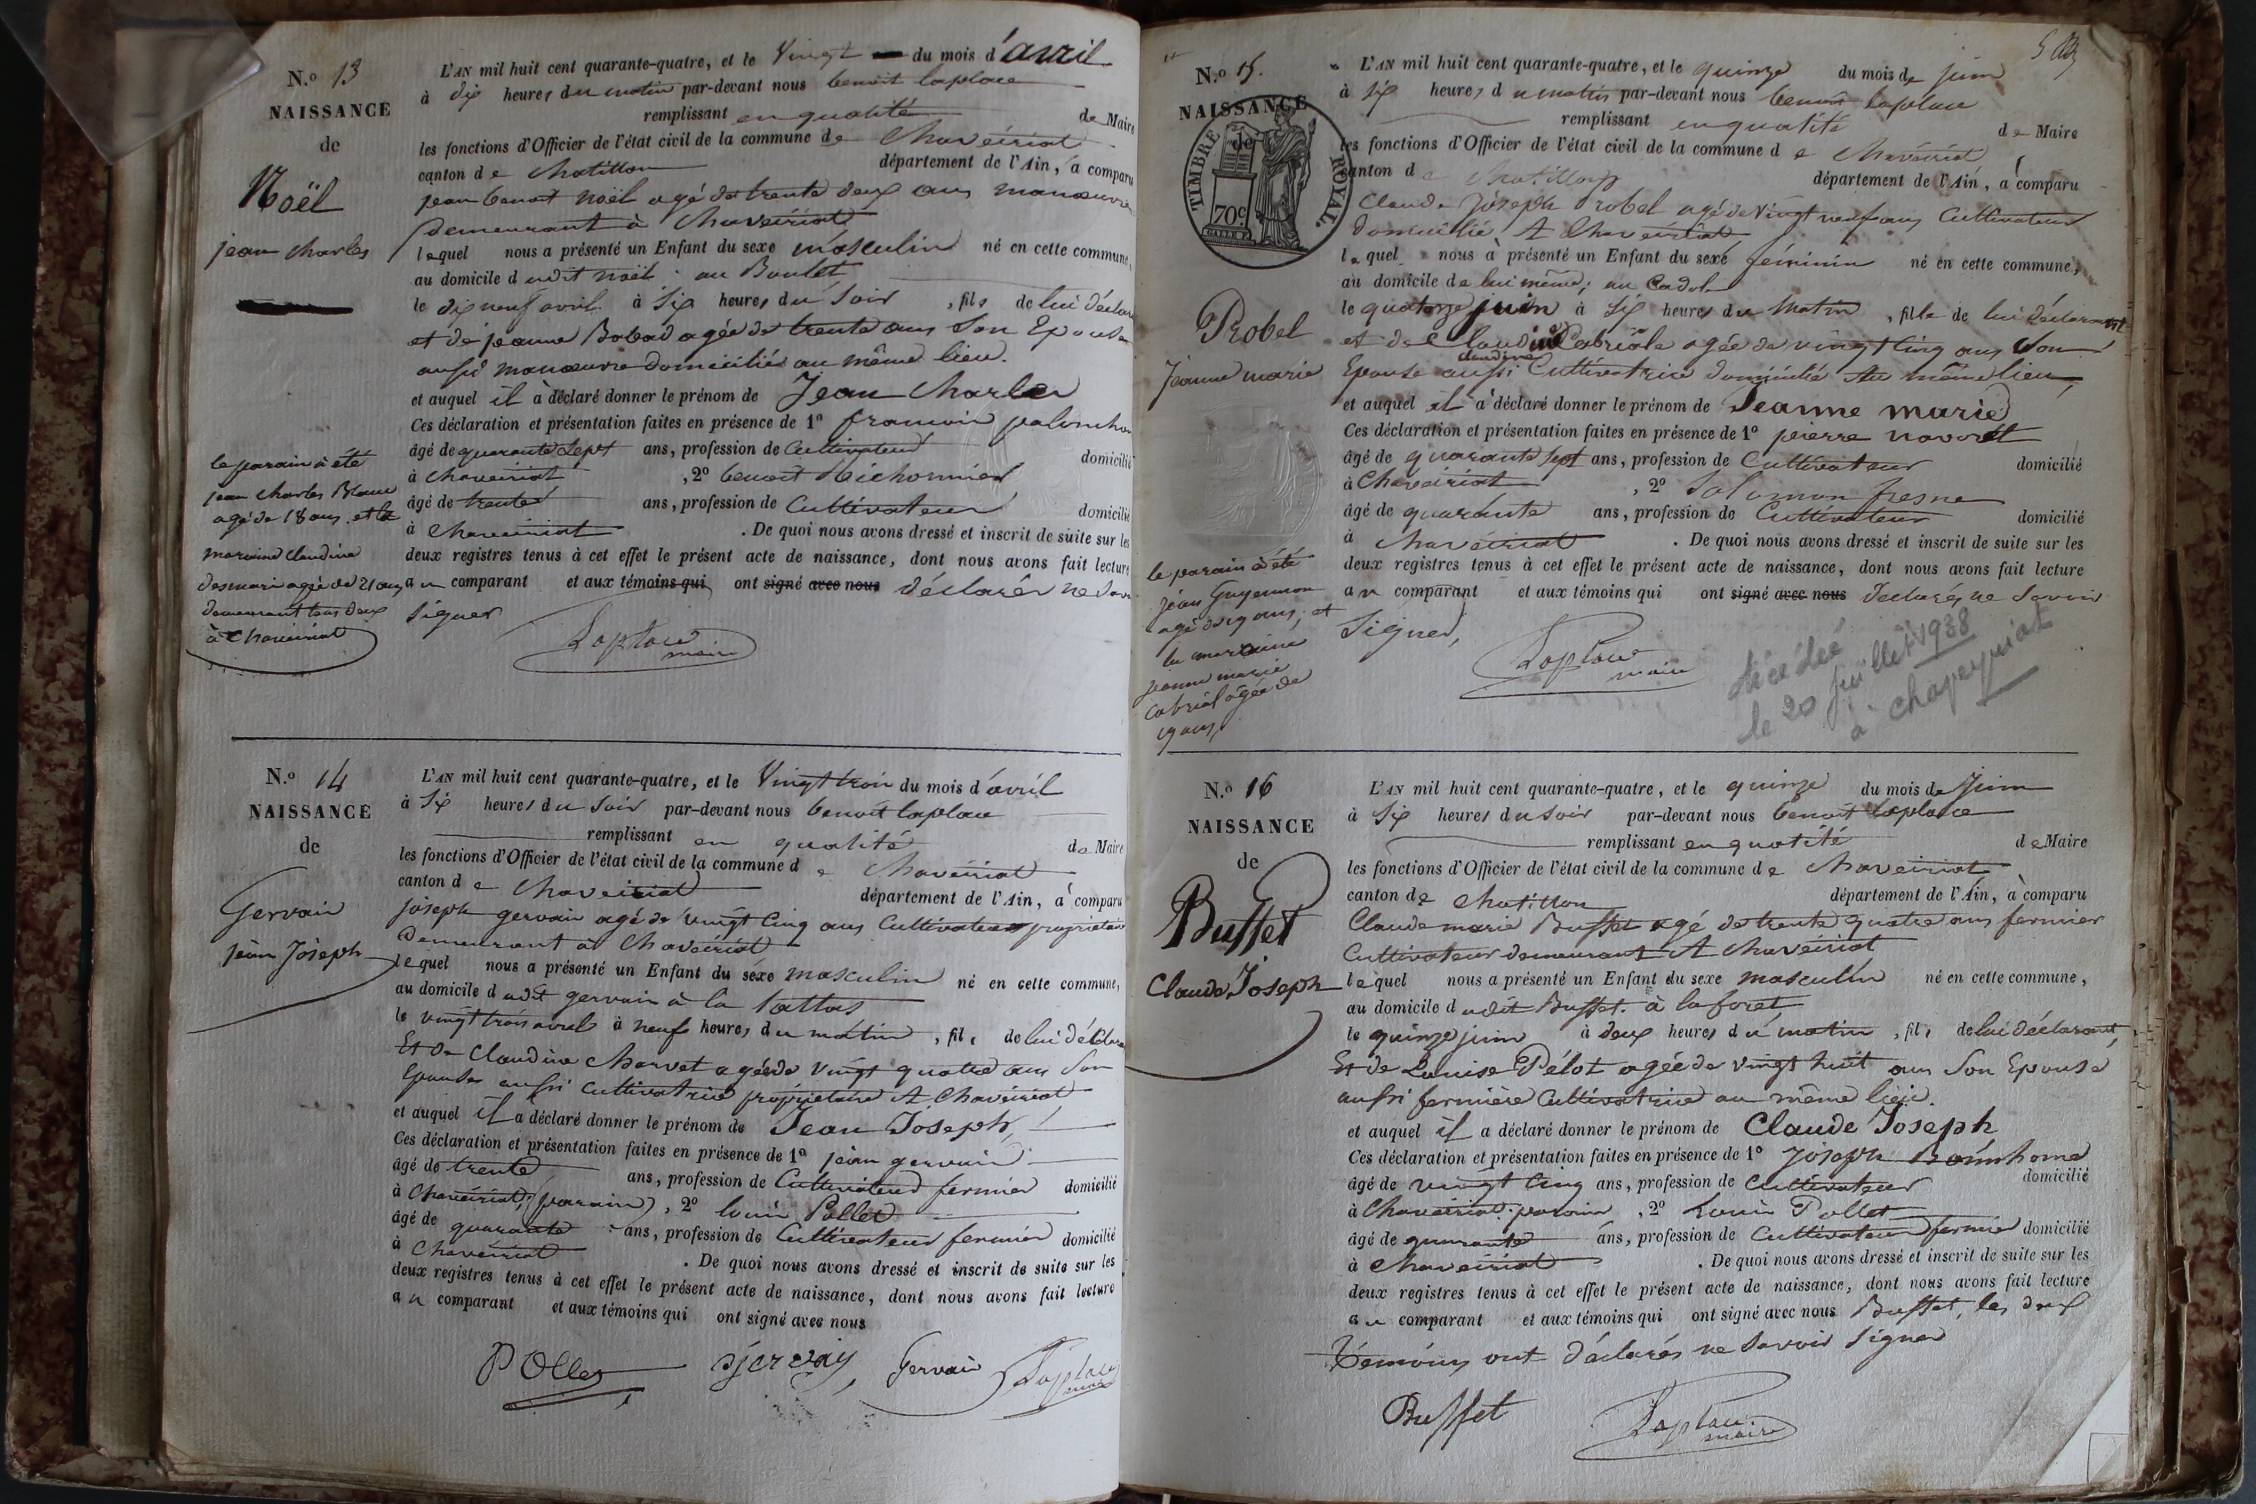 N.º 13
NAISSANCE
de
Noël
jean charles
le parain à été
jean charles Blanc
agé de 18 ans et la
maraine claudine
desmari agée de 21 ans
demeurant tous deux
à Chaveiriat
L'AN mil huit cent quarante-quatre, et le Vingt du mois d'avril
à dix heures du matin par-devant nous benoit laplace
remplissant en qualité de Maire
les fonctions d'Officier de l'état civil de la commune de Chaveiriat
canton de Chatillon département de l'Ain, a comparu
jean benoit Noël agé de trente deux ans manœuvre
demeurant à Chaveiriat
lequel nous a présenté un Enfant du sexe masculin né en cette commune,
au domicile dudit Noël au Boulet
le dixneuf avril à Six heures du Soir, fils de lui déclarant
et de jeanne Bobad agée de trente ans Son Epouse
aussi manœuvre domiciliés au même lieu.
et auquel il à déclaré donner le prénom de Jean Charles
Ces déclaration et présentation faites en présence de 1º francois palanchon
âgé de quarante Sept ans, profession de Cultivateur domicilié
à Chaveiriat, 2º benoit bichonnier
âgé de trente ans, profession de Cultivateur domicilié
à Chaveiriat. De quoi nous avons dressé et inscrit de suite sur les
deux registres tenus à cet effet le présent acte de naissance, dont nous avons fait lecture
au comparant et aux témoins qui ont signé avec nous déclarés ne Savoir
Signer
Laplace
maire
N.º 14
NAISSANCE
de
Gervain
jean Joseph
L'AN mil huit cent quarante-quatre, et le Vingt trois du mois d'avril
à Six heures du Soir par-devant nous benoit laplace
remplissant en qualité de Maire
les fonctions d'Officier de l'état civil de la commune de Chaveiriat
canton de Chaveiriat département de l'Ain, à comparu
joseph gervain agé de vingt Cinq ans Cultivateur propriétaire
demeurant à Chaveiriat
lequel nous a présenté un Enfant du sexe masculin né en cette commune,
au domicile dudit gervain à la
le vingt trois avril à neuf heures du matin, fils de lui déclarant
Et de Claudine Charvet agée de vingt quatre ans Son
Epouse aussi cultivatrice propriétaire A Chaveiriat
et auquel il a déclaré donner le prénom de Jean Joseph,
Ces déclaration et présentation faites en présence de 1º jean gervain
âgé de trente ans, profession de Cultivateur fermier domicilié
à Chaveiriat, (parain), 2º louis Pollet
âgé de quarante ans, profession de Cultivateur fermier domicilié
à Chaveiriat. De quoi nous avons dressé et inscrit de suite sur les
deux registres tenus à cet effet le présent acte de naissance, dont nous avons fait lecture
au comparant et aux témoins qui ont signé avec nous
POllet Gervain Laplace
maire
N.º 15.
NAISSANCE
de
TIMBRE ROYAL.
70 c
Probel
Jeanne marie
le parain à été
jean Guyennon
agé de 19 ans, et
la maraine
jeanne marie
cabriol agée de
19 ans,
L'AN mil huit cent quarante-quatre, et le quinze du mois de juin
à Six heures du matin par-devant nous benoit laplace
remplissant en qualité de Maire
les fonctions d'Officier de l'état civil de la commune de Chaveiriat
canton de Chatillon département de l'Ain, a comparu
Claude Joseph Probel agé de vingt neuf ans Cultivateur
domicilié A Chaveiriat
lequel nous à présenté un Enfant du sexe féminin né en cette commune,
au domicile de lui même, au Cadol
le quatorze juin à Six heures du Matin, fille de lui déclarant
et de Claudine Cabriole agée de vingt Cinq ans Son
claudine
Epouse aussi Cultivatrice domiciliée Au même lieu,
et auquel il a déclaré donner le prénom de Jeanne marie
Ces déclaration et présentation faites en présence de 1º pierre navoret
âgé de quarante sept ans, profession de Cultivateur domicilié
à Chaveiriat, 2º Salomon fresne
âgé de quarante ans, profession de Cultivateur domicilié
à Chaveiriat. De quoi nous avons dressé et inscrit de suite sur les
deux registres tenus à cet effet le présent acte de naissance, dont nous avons fait lecture
au comparant et aux témoins qui ont signé avec nous déclarés ne Savoir
Signer,
Laplace
maire
décédée
le 20 juillet 1938
à chaveyriat
N.º 16
NAISSANCE
de
Buffet
Claude Joseph
L'AN mil huit cent quarante-quatre, et le quinze du mois de Juin
à Six heures du Soir par-devant nous benoit laplace
remplissant en qualité de Maire
les fonctions d'Officier de l'état civil de la commune de Chaveiriat
canton de Chatillon département de l'Ain, à comparu
Claude marie Buffet agé de trente quatre ans fermier
Cultivateur demeurant A Chaveiriat
lequel nous a présenté un Enfant du sexe masculin né en cette commune,
au domicile dudit Buffet à la foret
le quinze juin à deux heures du matin, fils de lui déclarant,
Et de Louise Pélot agée de vingt huit ans Son Epouse
aussi fermière Cultivatrice au même lieu.
et auquel il a déclaré donner le prénom de Claude Joseph
Ces déclaration et présentation faites en présence de 1º joseph Bonnhome
âgé de vingt Cinq ans, profession de Cultivateur domicilié
à Chaveiriat. parain, 2º Louis Pollet
âgé de quarante ans, profession de Cultivateur fermier domicilié
à Chaveiriat. De quoi nous avons dressé et inscrit de suite sur les
deux registres tenus à cet effet le présent acte de naissance, dont nous avons fait lecture
au comparant et aux témoins qui ont signé avec nous Buffet, les deux
Témoins ont déclarés ne Savoir Signer
Buffet Laplace
maire